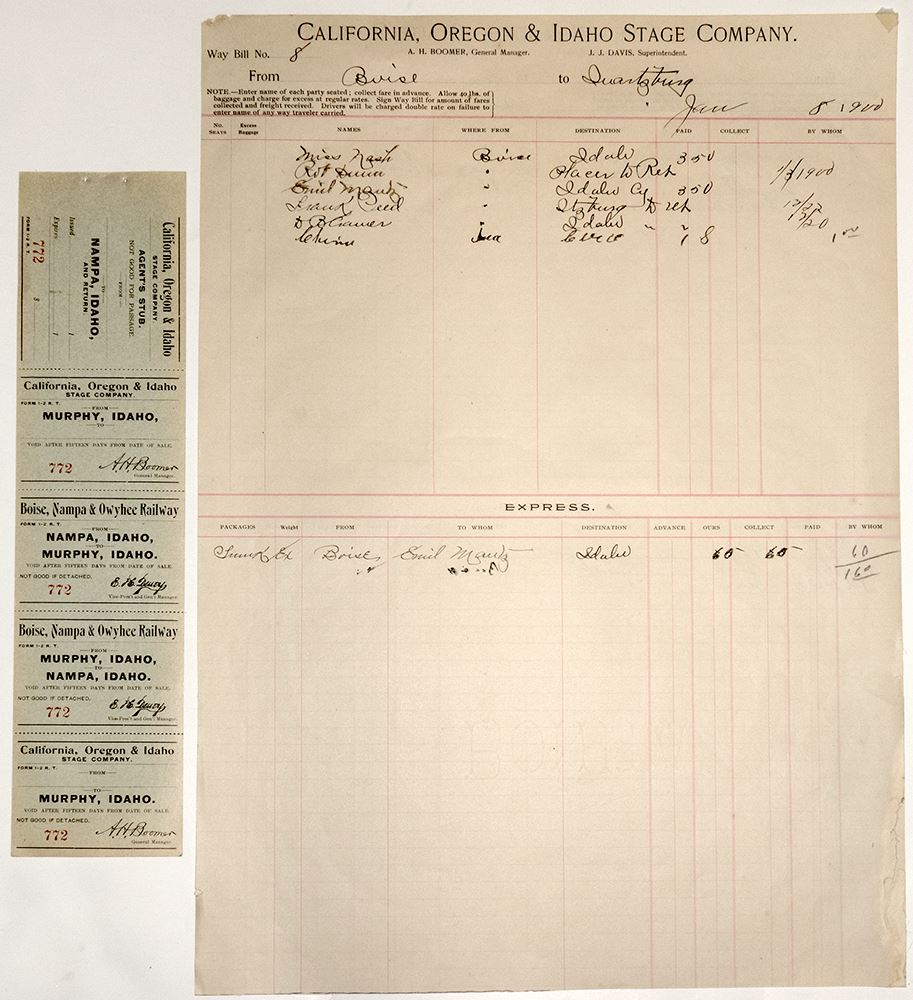 CALIFORNIA, OREGON & IDAHO STAGE COMPANY.
Way Bill No. 8
A. H. BOOMER, General Manager. J. J. DAVIS, Superintendent.
From Boise to Quartzburg
NOTE.—Enter name of each party seated; collect fare in advance. Allow 40 lbs. of
baggage and charge for excess at regular rates. Sign Way Bill for amount of fares
collected and freight received. Drivers will be charged double rate on failure to
enter name of any way traveler carried.
Jan 8 1900
No. SEATS Excess Baggage NAMES WHERE FROM DESTINATION PAID COLLECT BY WHOM
Miss Nash Boise Idaho 350
Rob " Placer to Ret 1900
Emil Mautz " Idaho Cy 350
Frank " to ret 12/27
Idaho 12/20
1.00
EXPRESS.
PACKAGES Weight FROM TO WHOM DESTINATION ADVANCE OURS COLLECT PAID BY WHOM
Trunk Ex Boise Emil Mautz Idaho 60 60 60
160
California, Oregon & Idaho
STAGE COMPANY.
AGENT'S STUB.
NOT GOOD FOR PASSAGE.
—FROM—
—TO—
NAMPA, IDAHO,
AND RETURN.
Issued 1
Expires 1
$
FORM 1-2 R. T.
772
California, Oregon & Idaho
STAGE COMPANY.
FORM 1-2 R. T.
—FROM—
MURPHY, IDAHO,
—TO—
VOID AFTER FIFTEEN DAYS FROM DATE OF SALE.
772 A.H. Boomer
General Manager.
Boise, Nampa & Owyhee Railway
FORM 1-2 R. T.
—FROM—
NAMPA, IDAHO,
—TO—
MURPHY, IDAHO.
VOID AFTER FIFTEEN DAYS FROM DATE OF SALE.
NOT GOOD IF DETACHED.
772
Vice-Pres't and Gen'l Manager.
Boise, Nampa & Owyhee Railway
FORM 1-2 R. T.
—FROM—
MURPHY, IDAHO,
—TO—
NAMPA, IDAHO.
VOID AFTER FIFTEEN DAYS FROM DATE OF SALE.
NOT GOOD IF DETACHED.
772
Vice-Pres't and Gen'l Manager.
California, Oregon & Idaho
STAGE COMPANY.
FORM 1-2 R. T.
—FROM—
—TO—
MURPHY, IDAHO.
VOID AFTER FIFTEEN DAYS FROM DATE OF SALE.
NOT GOOD IF DETACHED.
772 A.H. Boomer
General Manager.